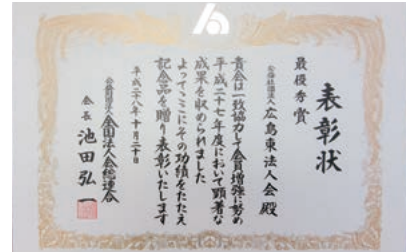 表彰状
最優秀賞
公益社団法人 広島東法人会 殿
貴会は一致協力して会員増強に努め
平成二十七年度において顕著な
成果を収められました
よってここにその功績をたたえ
記念品を贈り表彰いたします
平成二十八年十月二十日
公益財団法人 全国法人会総連合
会長 池田弘一